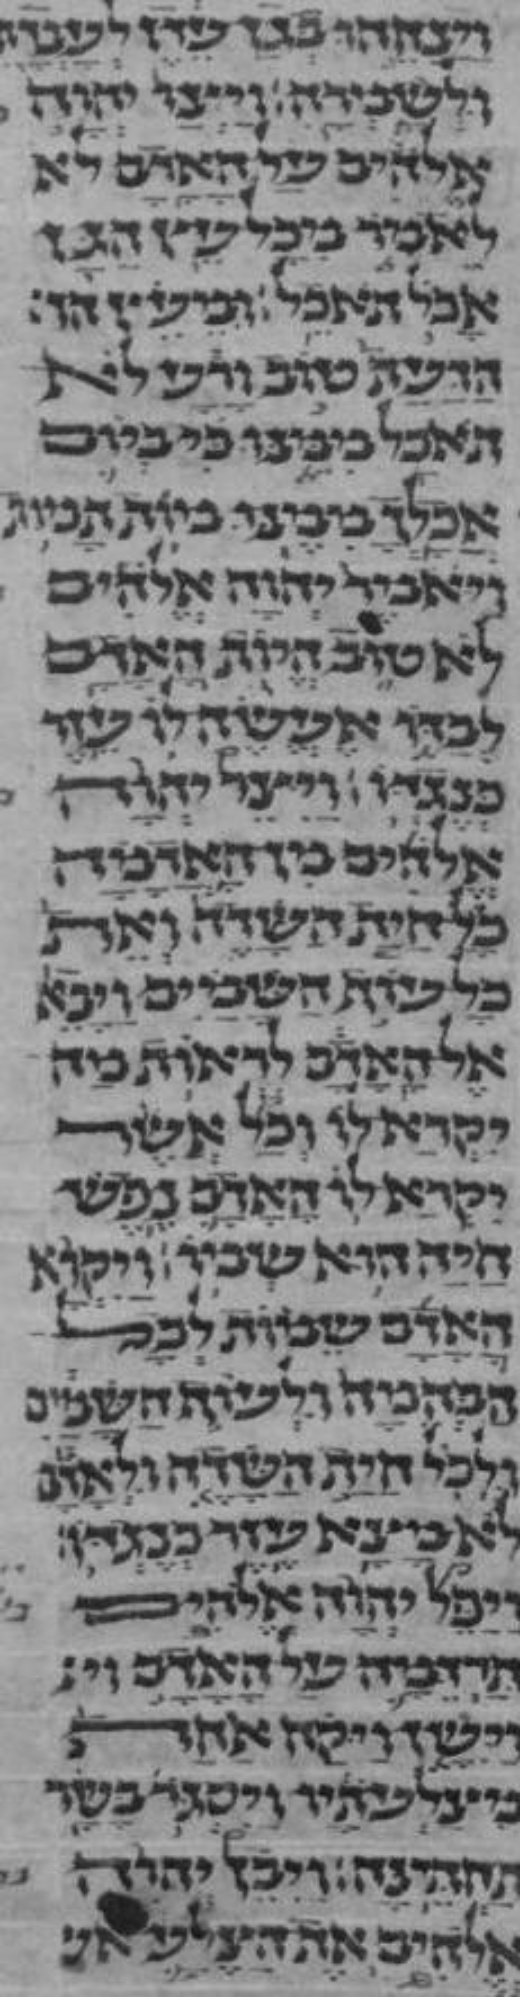 וינחהו בגן עדן לעבדה
ולשמרה׃ ויצו יהוה
אלהים על האדם לא
לאמר מכל עץ הגן
אכל תאכל׃ ומעץ הד׳
הדעת טוב ורע לא
תאכל ממנו כי ביום
אכלך ממנו מות תמות
ויאמר יהוה אלהים
לא טוב היות האדם
לבדו אעשה לו עזר
כנגדו׃ ויצר יהוה
אלהים מן האדמה
כל חית השדה ואת
כל עוף השמים ויבא
אל האדם לראות מה
יקרא לו וכל אשר
יקרא לו האדם נפש
חיה הוא שמו׃ ויקרא
האדם שמות לכל
הבהמה ולעוף השמים
ולכל חית השדה ולאדם
לא מצא עזר כנגדו׃
ויפל יהוה אלהים
תרדמה על האדם וי׳
ויישן ויקח אחת
מצלעתיו ויסגר בשר
תחתנה׃ ויבן יהוה
אלהים את הצלע אש׳